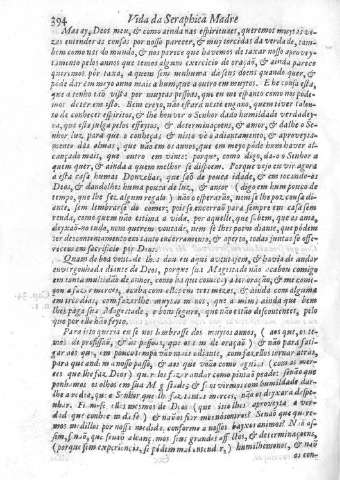 394 Vida da Seraphica Madre
Mas ay, Deos meu, & como ainda nas espirituaes, queremos muytas ve-
zes entender as cousas por nosso parecer, & muy torcidas da verdade, tam-
bem como nas do mundo, & nos parece que havemos de taxar nosso aprovey-
tamento pelos annos que temos algum exercicio de oraçaõ, & ainda parece
queremos pôr taxa, a quem sem nenhuma dá seus doens quando quer, &
póde dar em meyo anno mais a hum, que a outro em muytos. E he cousa esta,
que a tenho taõ vista por muytas pessoas, que eu me espanto como nos pode-
mos deter em isso. Bem creyo, naõ estará neste engano, quem tiver talen-
to de conhecer espiritos, & lhe houver o Senhor dado humildade verdadey-
ra, que este julga pelos effeytos, & determinaçoens, & amor, & dalhe o Se-
nhor luz para que o conheça: & nisto vè o adiantamento, & aproveyta-
mento das almas, que naõ em os annos, que em meyo póde hum haver al-
cançado mais, que outro em vinte: porque, como digo, dá-o o Senhor a
quem quer, & ainda a quem melhor se dispoem. Porque vejo eu vir agora
a esta casa humas Donzellas, que saõ de pouca idade, & em tocando-as
Deos, & dandolhes huma pouca de luz, & amor (digo em hum pouco de
tempo, que lhe fez algum regalo) naõ o esperáraõ, nem se lhe poz cousa di-
ante, sem lembrarse do comer, pois se encerraõ para sempre em casa sem
renda, como quem naõ estima a vida por aquelle, que sabem, que as ama,
deyxaõ-no tudo, nem querem vontade, nem se lhes poem diante, que pódem
ter descontentamento em tanto encerramento, & aperto, todas juntas se offe-
recem em sacrificio por Deos.
Quam de boa vontade lhes dou eu aqui a ventagem, & havia de andar
envergonhada diante de Deos, porque sua Magestade naõ acabou comigo
em tanta multidaõ de annos, como ha que comecey a ter oraçaõ, & me come-
çou a fazer mercês, acaba com ellas em tres mezes, & ainda com alguma
em tres dias, com fazerlhe muytas menos, que a mim, ainda que bem
lhes paga sua Magestade, a bom seguro, que naõ estaõ descontentes, pelo
que por elle haõ feyto.
Para isto queria eu se nos lembrasse dos muytos annos, (aos que, os te-
mos de profissaõ, & as pessoas, que os tem de oraçaõ) & naõ para fati-
gar aos que, em pouco tempo vaõ mais adiante, com fazellos tornar atrás,
para que andem a nosso passo, & aos que voaõ como aguias (com as mer-
cês que lhe faz Deos) querelos fazer andar como pinto peado: senaõ que
ponhamos os olhos em sua Magestade, & se os virmos com humildade dar-
lhe a redea, que o Senhor que lhe faz tantas mercês, naõ os deyxará despe-
nhar. Fiaõ-se elles mesmos de Deos (que isto lhes aproveyta a ver-
dade que conhecem da fé) & naõ os fiaremos nòs? Senaõ que quere-
mos medillos por nossa medida, conforme a nossos bayxos animos? Naõ as-
sim, senaõ, que se naõ alcançamos seus grandes affectos, & determinaçoens,
(porque sem experiencia, se pódem mal entender) humilhemonos, & naõ
os con-